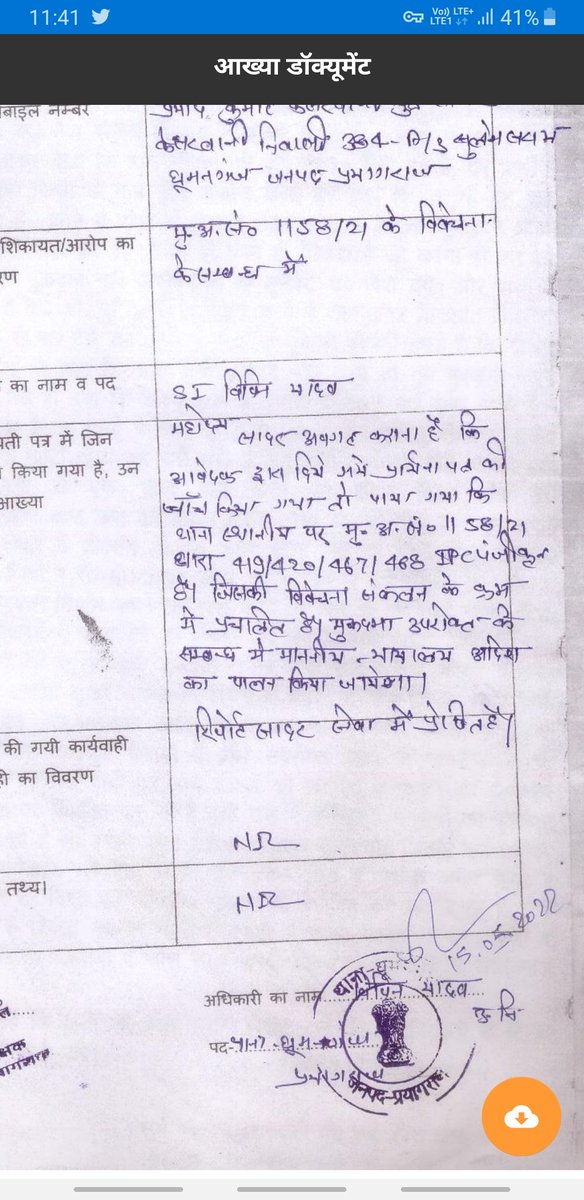 11:41
Vo)) LTE+
LTE1
41%
आख्या डॉक्यूमेंट
बाइल नम्बर
कुमार
केसरवानी निवासी 334-
धूमनगंज जनपद प्रयागराज
शिकायत/आरोप का
रण
मु०अ०सं० 1158/21 के विवेचना
के सम्बन्ध में
का नाम व पद
SI विपिन यादव
यती पत्र में जिन
किया गया है, उन
आख्या
महोदय
सादर अवगत कराना है कि
आवेदक द्वारा दिये गये प्रार्थना पत्र की
जाँच किया गया तो पाया गया कि
थाना स्थानीय पर मु०अ०सं० 1158/21
धारा 419/420/467/468 IPC पंजीकृत
है। जिसकी विवेचना संकलन के क्रम
में प्रचलित है। मुकदमा उपरोक्त के
सम्बन्ध में माननीय न्यायालय आदेश
का पालन किया जायेगा।
रिपोर्ट सादर सेवा में प्रेषित है।
की गयी कार्यवाही
ही का विवरण
NIL
तथ्य।
NIL
15.05.2022
अधिकारी का नाम विपिन यादव
उ०नि०
पद थाना धूमनगंज
प्रयागराज
थाना-धू
जनपद-प्रयागराज